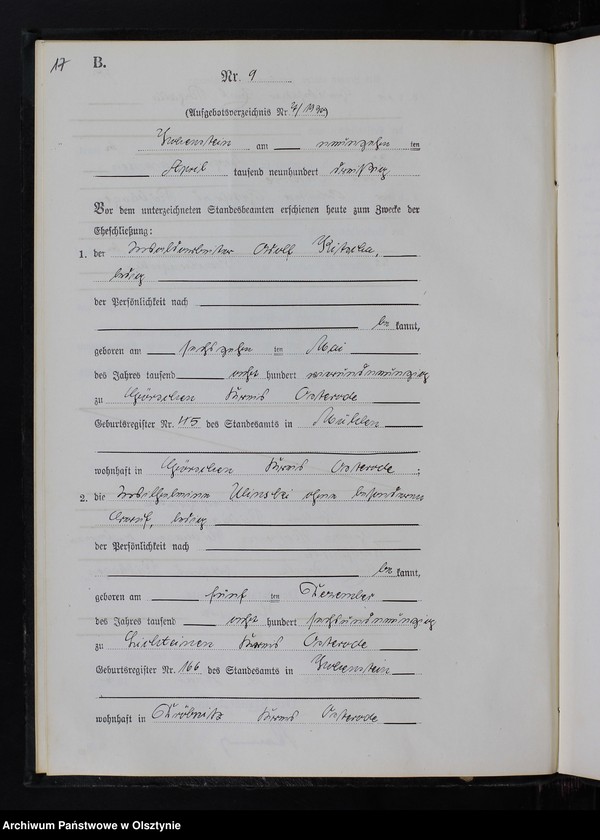 17 B.
Nr. 9
(Aufgebotsverzeichnis Nr.
Hohenstein am neunzehn ten
April tausend neunhundert dreißig
Vor dem unterzeichneten Standesbeamten erschienen heute zum Zwecke der
Eheschließung:
1. der Adolf
ledig
der Persönlichkeit nach
be kannt,
geboren am sechszehn ten Mai
des Jahres tausend acht hundert
zu Görschen Kreis Osterode
Geburtsregister Nr. 45 des Standesamts in Mühlen
wohnhaft in Görschen Kreis Osterode ;
2. die Wilhelmine ohne besonderen
Beruf, ledig
der Persönlichkeit nach
be kannt,
geboren am fünf ten Dezember
des Jahres tausend acht hundert sechsundneunzig
zu Lichteinen Kreis Osterode
Geburtsregister Nr. 166 des Standesamts in Hohenstein
wohnhaft in Dröbnitz Kreis Osterode
Archiwum Państwowe w Olsztynie